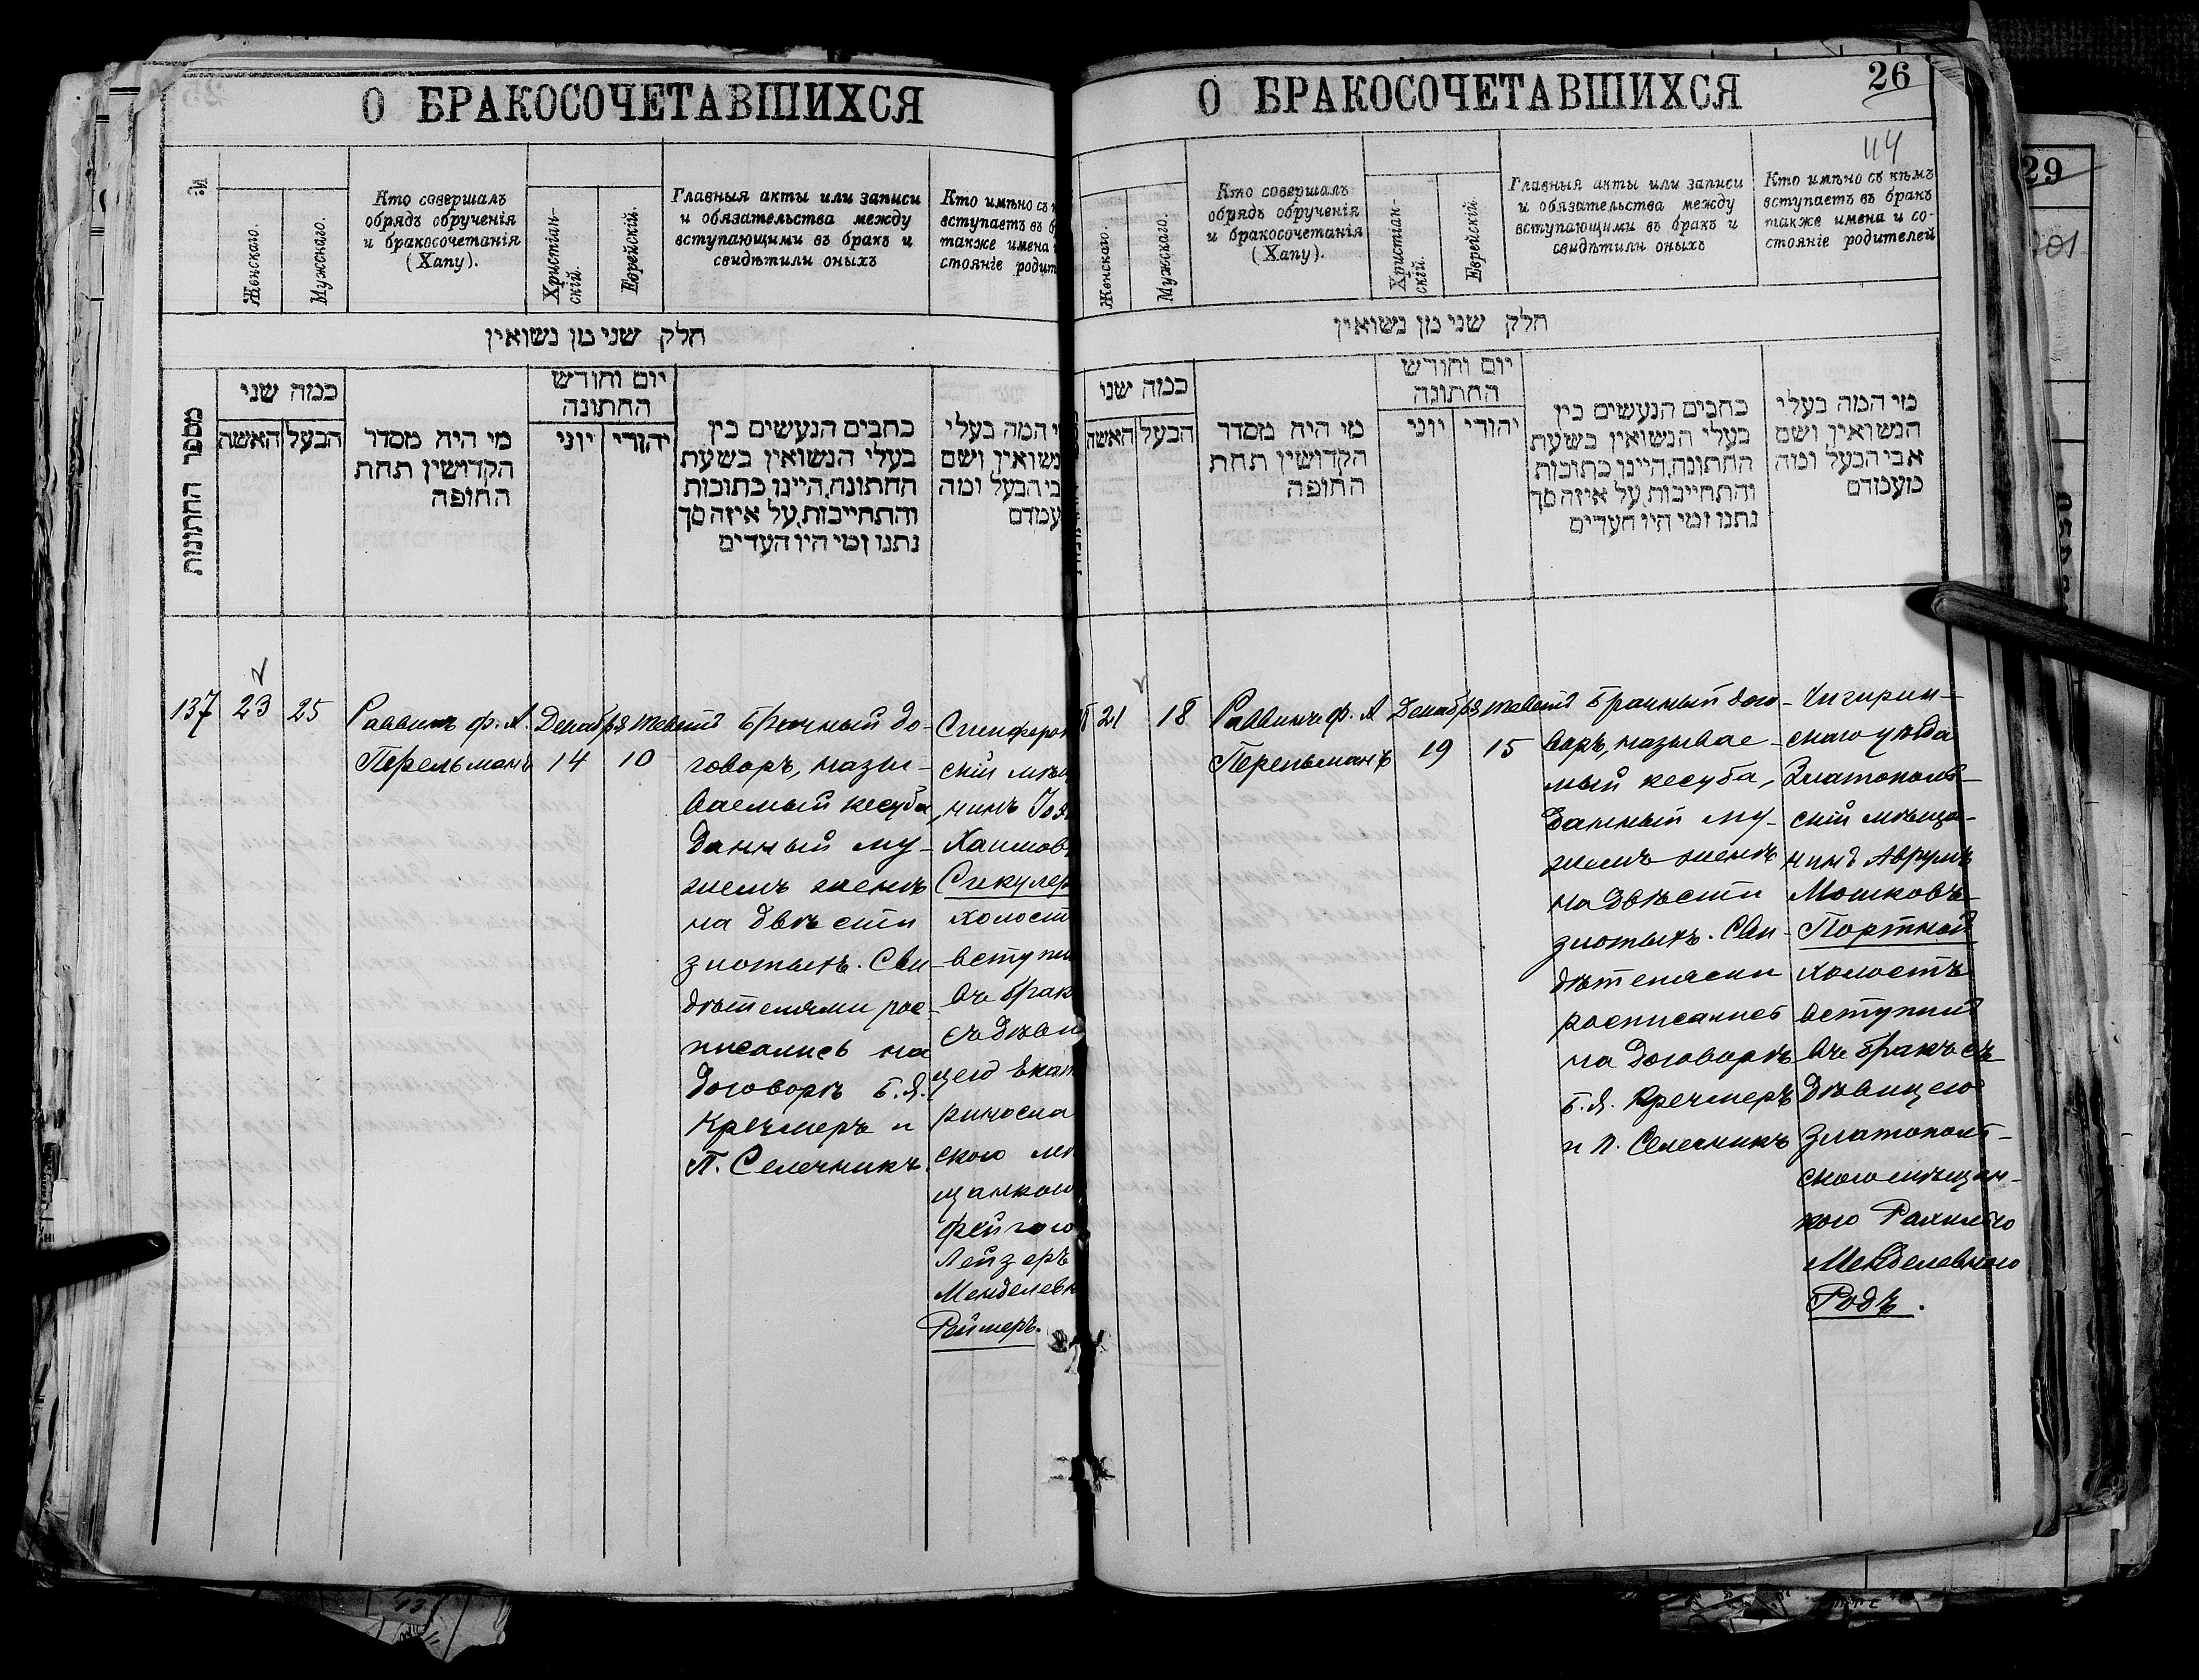 О БРАКОСОЧЕТАВШИХСЯ
№
Женскаго.
Мужскаго.
Кто совершалъ
обрядъ обрученія
и бракосочетанія
(Хапу).
Христіан-
скій.
Еврейскій.
Главныя акты или записи
и обязательства между
вступающими въ бракъ и
свидѣтили оныхъ
Кто имѣно съ
вступаетъ въ
также имена
стояніе родит
חלק שני מן נשואין
מספר החתונות
כמה שני
האשה
הבעל
מי היה מסדר
הקדושין תחת
החופה
יום וחודש
החתונה
יוני
יהודי
כתבים הנעשים בין
בעלי הנשואין בשעת
החתונה, היינו כתובות
והתחייבות, על איזה סך
נתנו ומי היו העדים
י המה בעלי
נשואין ושם
בי הבעל ומה
עמדם
137
23
25
Раввинъ ф. А.
Перельманъ
Декабря
14
тевий
10
брачный до-
говоръ, назы-
ваемый кесуба,
данный му-
жемъ женѣ
на двѣсти
злотыхъ. Сви-
дѣтелями рос-
писались на
договорѣ Б. Я.
Кречмеръ и
П. Селечникъ.
Симферо
скій мѣщ
чинъ
Хаимов
Сикулер
холост
вступи
въ брак
съ дѣви
цею Екат
ринослав
скою мѣ
щанкою
Фейгою
Лейзеръ
Менделевн
Реймеръ.
О БРАКОСОЧЕТАВШИХСЯ
26
44
Женскаго.
Мужскаго.
Кто совершалъ
обрядъ обрученія
и бракосочетанія
(Хапу).
Христіан-
скій.
Еврейскій.
Главныя акты или записи
и обязательства между
вступающими въ бракъ и
свидѣтили оныхъ
Кто имѣно съ кѣмъ
вступаетъ въ бракъ
также имена и со-
стояніе родителей
חלק שני מן נשואין
כמה שני
האשה
הבעל
מי היה מסדר
הקדושין תחת
החופה
יום וחודש
החתונה
יוני
יהודי
כתבים הנעשים בין
בעלי הנשואין בשעת
החתונה, היינו כתובות
והתחייבות, על איזה סך
נתנו ומי היו העדים
מי המה בעלי
הנשואין ושם
אבי הבעל ומה
מעמדם
21
18
Раввинъ ф. А
Перельманъ
Декабря
19
тевий
15
брачный дого-
воръ, называе-
мый кесуба,
данный му-
жемъ женѣ
на двѣсти
злотыхъ. Сви-
дѣтелями
росписались
на договорѣ
Б. Я. Кречмеръ
и П. Селечникъ
Чигирин-
скаго уѣзда
Златополь-
скій мѣща-
нинъ Аврумъ
Мошковъ
Портной
холостъ
вступилъ
въ бракъ съ
дѣвицею
Златополь-
скою мѣщан-
кою Рахилью
Менделевною
Родъ.
29
201